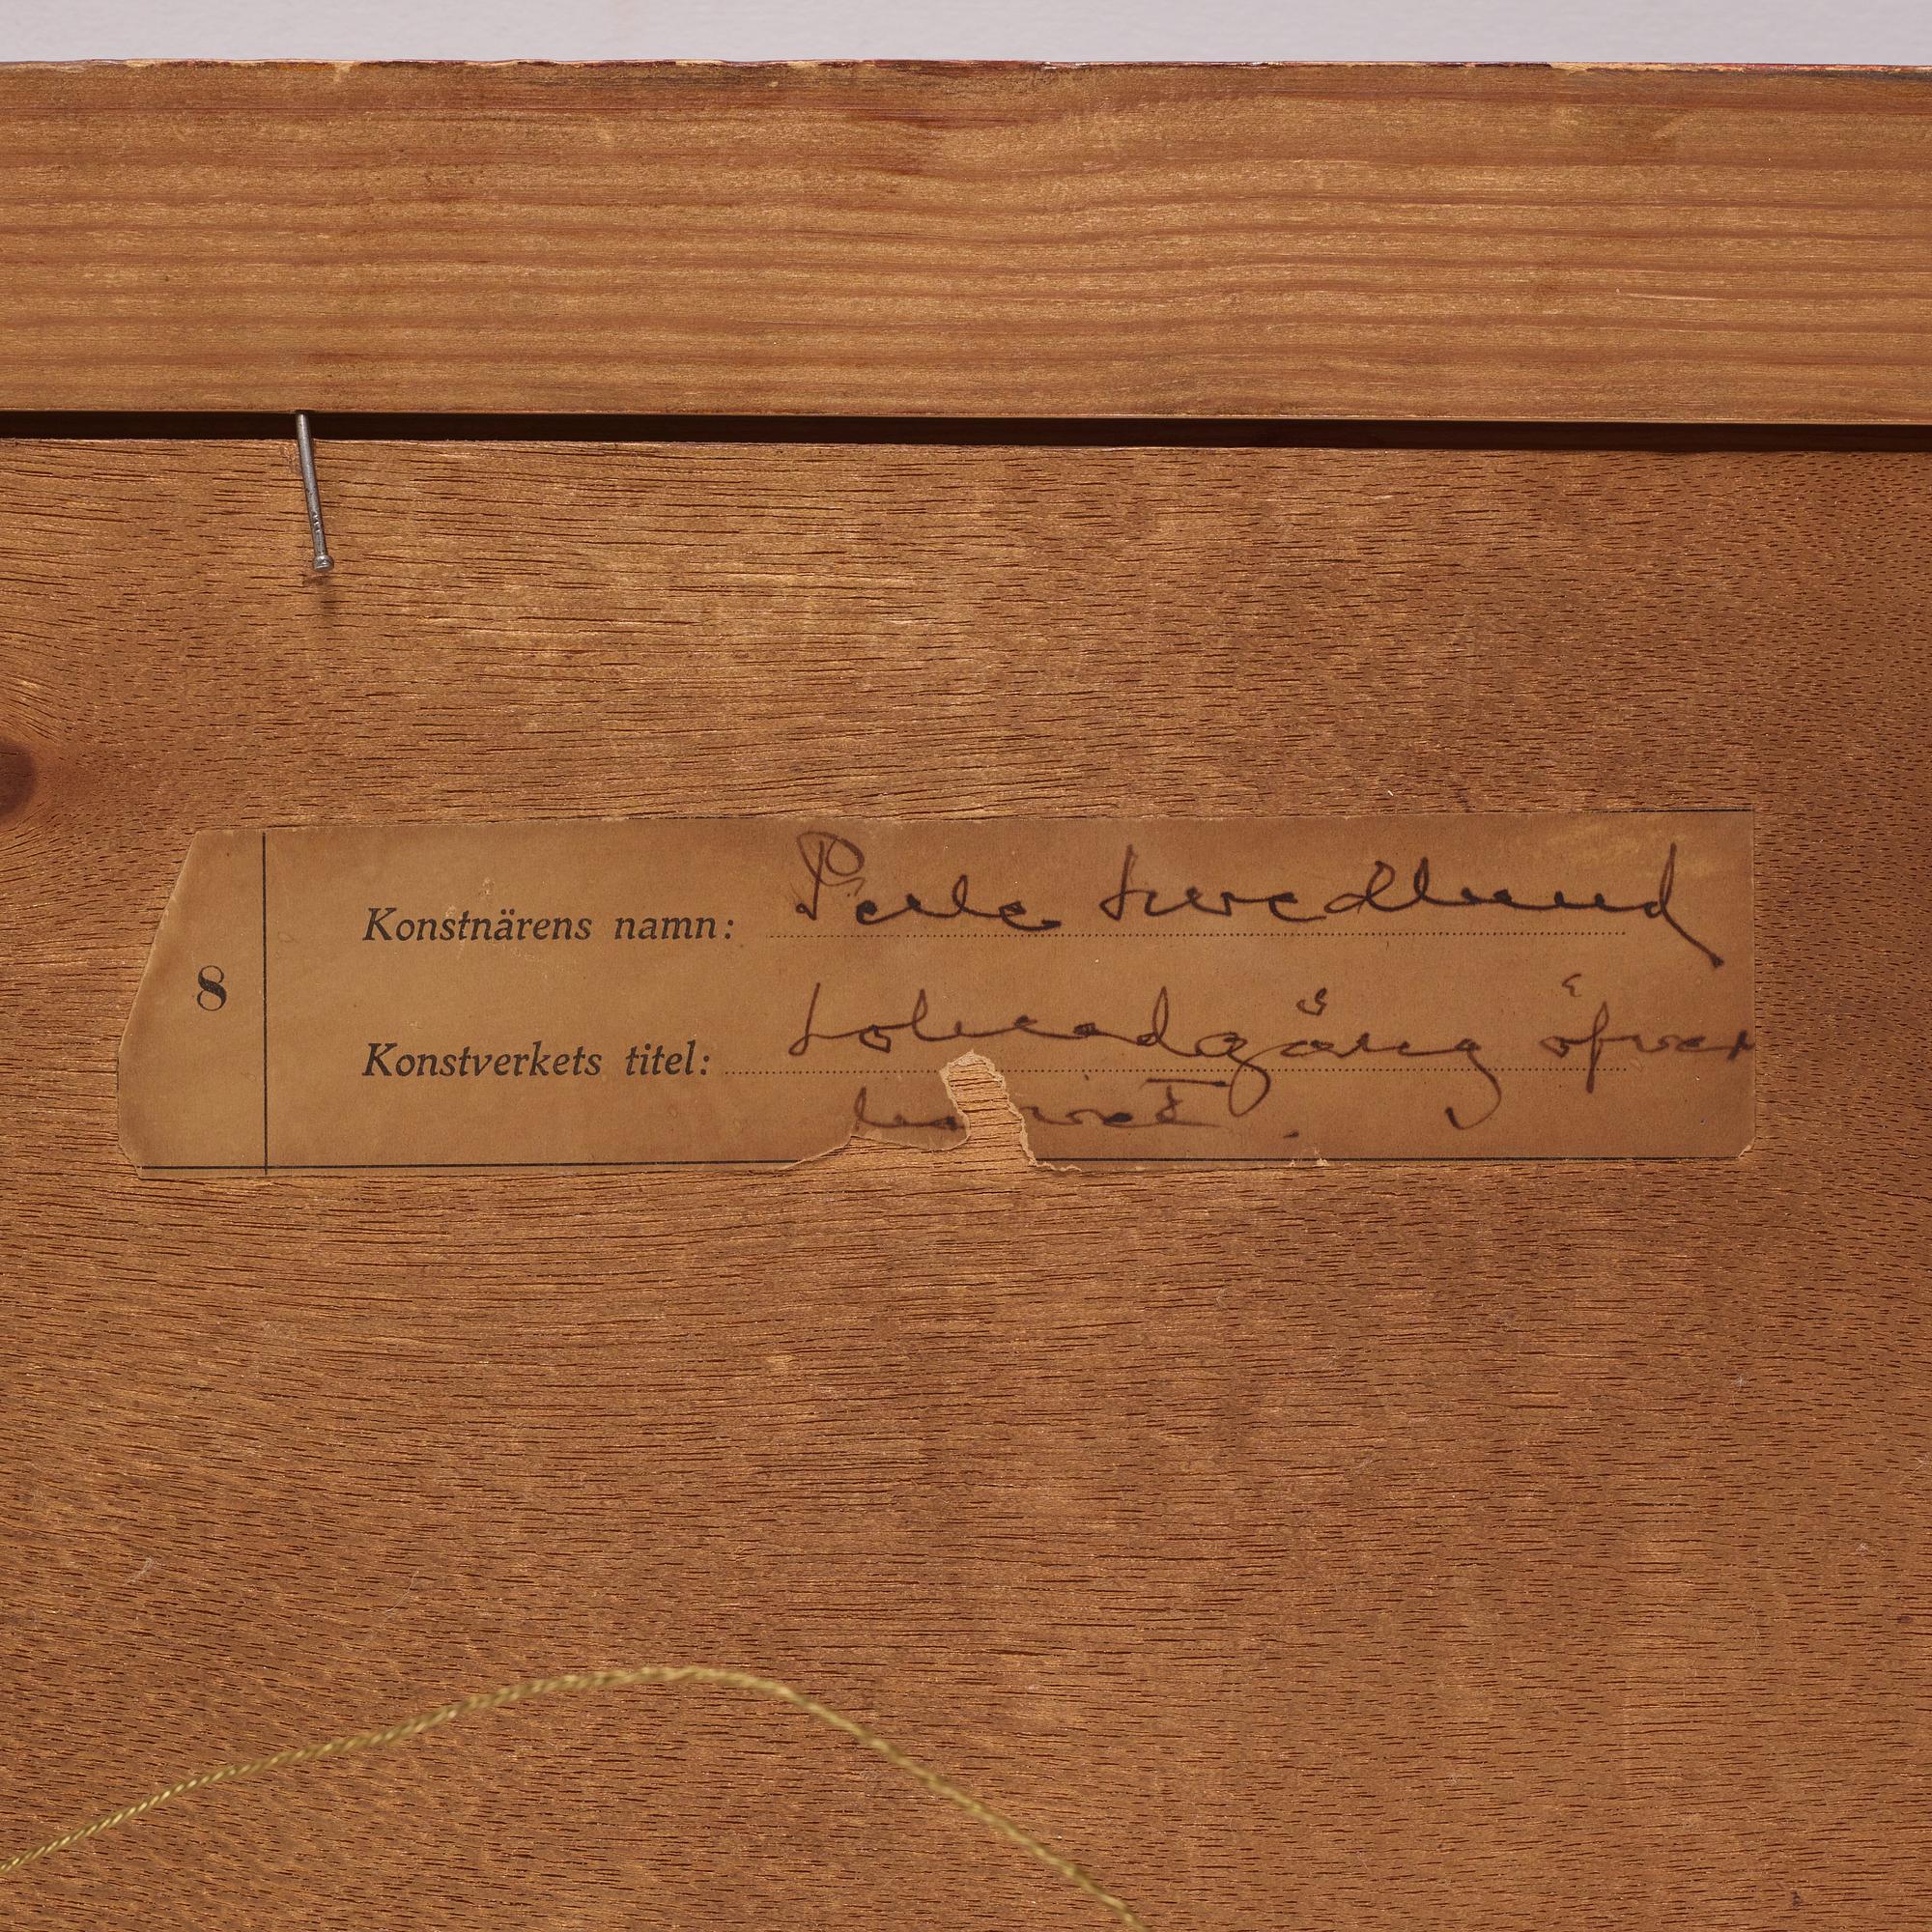 8
Konstnärens namn: Pelle Swedlund
Konstverkets titel: Solnedgång öfver